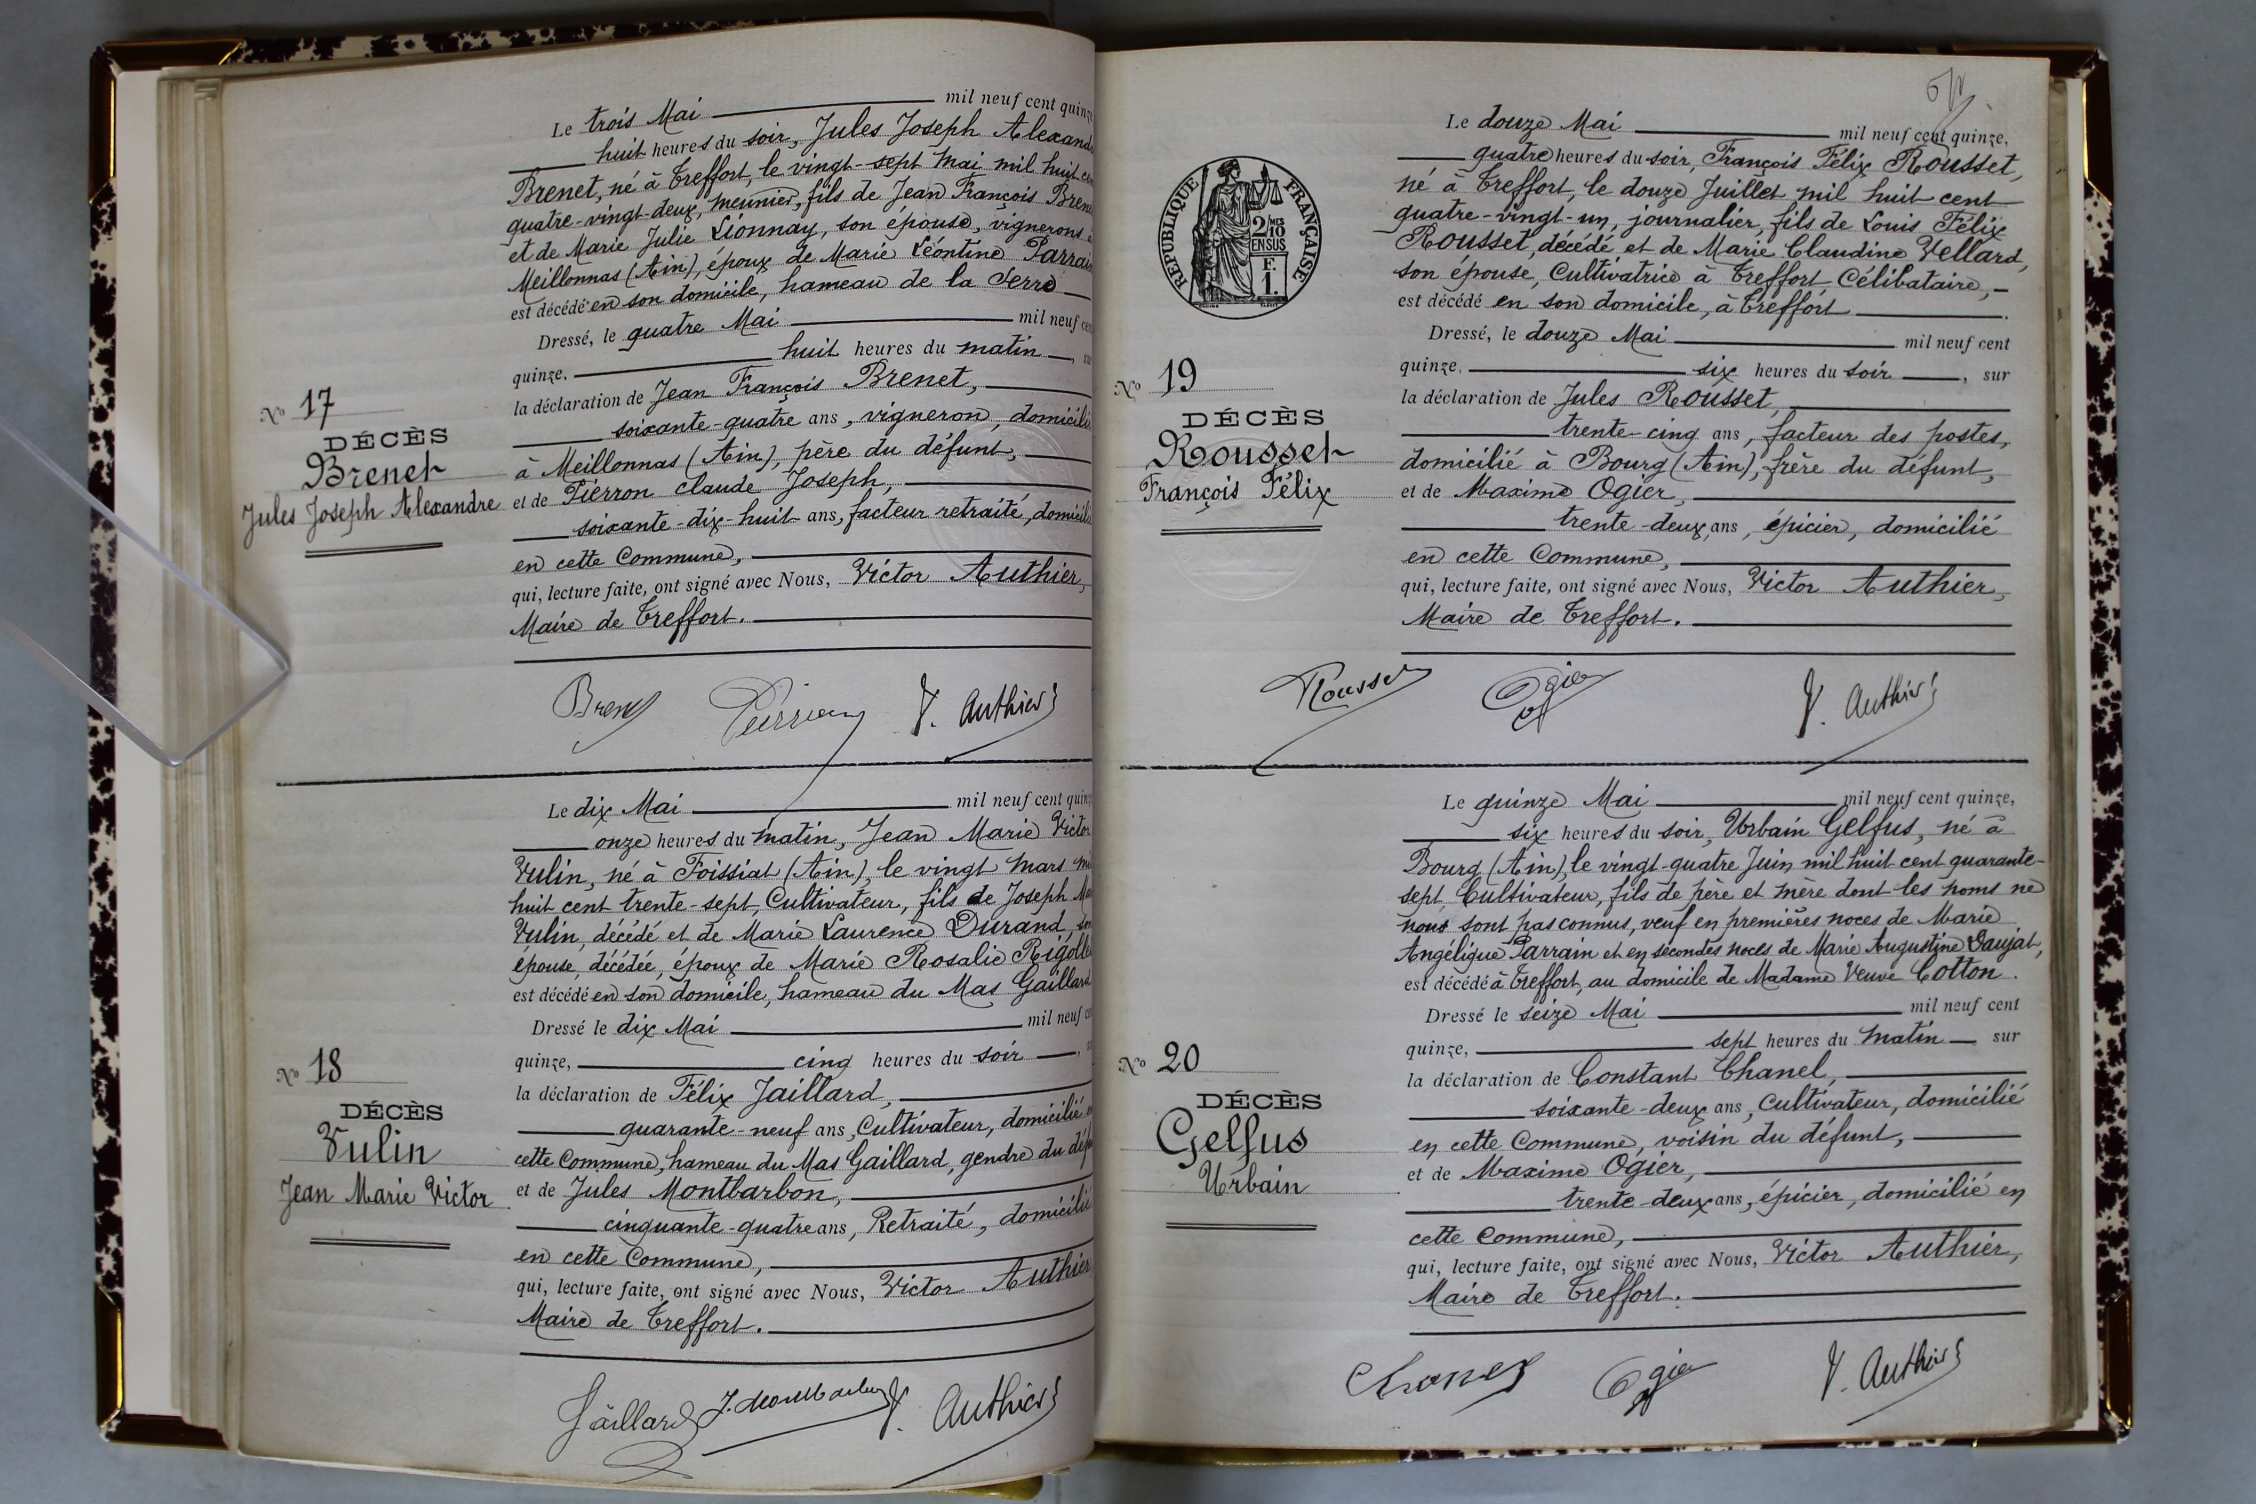 Le trois Mai mil neuf cent quinze
huit heures du soir, Jules Joseph Alexand
Brenet, né à Treffort, le vingt-sept Mai mil huit cen
quatre-vingt-deux, meunier, fils de Jean François Brene
et de Marie Julie Lionnay, son épouse, vignerons à
Meillonnas (Ain), époux de Marie Léontine Parrain
est décédé en son domicile, hameau de la Serre
Dressé, le quatre Mai mil neuf cen
quinze, huit heures du matin, sur
la déclaration de Jean François Brenet,
soixante-quatre ans, vigneron, domicilié
à Meillonnas (Ain), père du défunt,
et de Pierron Claude Joseph,
soixante-dix-huit ans, facteur retraité, domicilié
en cette Commune,
qui, lecture faite, ont signé avec Nous, Victor Authier,
Maire de Treffort.
No 17
DÉCÈS
Brenet
Jules Joseph Alexandre
Brenet Pierron V. Authier
Le dix Mai mil neuf cent quinz
onze heures du matin, Jean Marie Victor
Vulin, né à Foissiat (Ain), le vingt Mars mi
huit cent trente-sept, Cultivateur, fils de Joseph Ma
Vulin, décédé et de Marie Laurence Durand, son
épouse, décédée, époux de Marie Rosalie Rigolle
est décédé en son domicile, hameau du Mas Gaillard
Dressé le dix Mai mil neuf cen
quinze, cinq heures du soir
la déclaration de Félix Jaillard,
quarante-neuf ans, Cultivateur, domicilié en
cette Commune, hameau du Mas Gaillard, gendre du défu
et de Jules Montbarbon,
cinquante-quatre ans, Retraité, domicilié
en cette Commune,
qui, lecture faite, ont signé avec Nous, Victor Authier
Maire de Treffort.
No 18
DÉCÈS
Vulin
Jean Marie Victor
Jaillard J. Montbarbon V. Authier
RÉPUBLIQUE FRANÇAISE
2/10 MES
EN SUS
F.
1.
Le douze Mai mil neuf cent quinze,
quatre heures du soir, François Félix Rousset,
né à Treffort, le douze Juillet mil huit cent
quatre-vingt-un, journalier, fils de Louis Félix
Rousset, décédé et de Marie Claudine Vellard,
son épouse, Cultivatrice à Treffort, Célibataire,
est décédé en son domicile, à Treffort.
Dressé, le douze Mai mil neuf cent
quinze, six heures du soir, sur
la déclaration de Jules Rousset,
trente-cinq ans, facteur des postes,
domicilié à Bourg (Ain), frère du défunt,
et de Maxime Ogier,
trente-deux, ans, épicier, domicilié
en cette Commune,
qui, lecture faite, ont signé avec Nous, Victor Authier,
Maire de Treffort.
No 19
DÉCÈS
Rousset
François Félix
Rousset Ogier V. Authier
Le quinze Mai mil neuf cent quinze,
six heures du soir, Urbain Gelfus, né à
Bourg (Ain), le vingt-quatre Juin mil huit cent quarante-
sept, Cultivateur, fils de père et mère dont les noms ne
nous sont pas connus, veuf en premières noces de Marie
Angélique Parrain et en secondes noces de Marie Augustine Gaujat,
est décédé à Treffort, au domicile de Madame Veuve Cotton.
Dressé le seize Mai mil neuf cent
quinze, sept heures du matin sur
la déclaration de Constant Chanel,
soixante-deux ans, Cultivateur, domicilié
en cette Commune, voisin du défunt,
et de Maxime Ogier,
trente-deux ans, épicier, domicilié en
cette Commune,
qui, lecture faite, ont signé avec Nous, Victor Authier,
Maire de Treffort.
No 20
DÉCÈS
Gelfus
Urbain
Chanel Ogier V. Authier